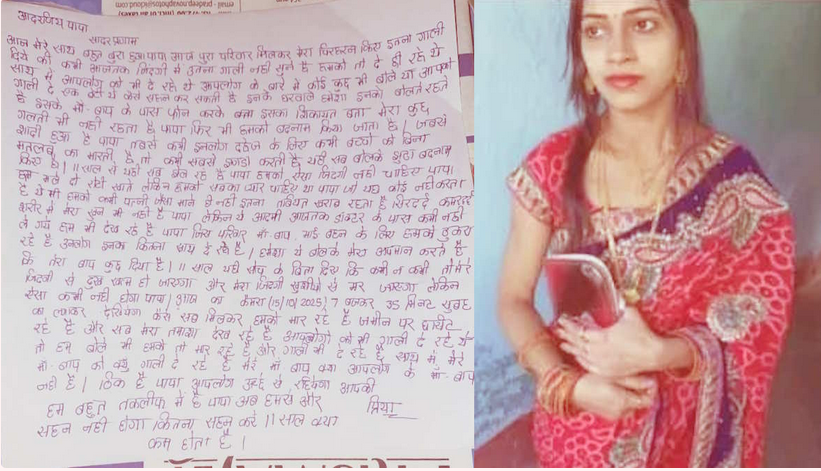 आदरणिय पापा
सादर प्रणाम
आज मेरे साथ बहुत बुरा हुआ पापा आज पुरा परिवार मिलकर मेरा चिरहरन किए इतना गाली
दिये की कभी आजतक जिंदगी में उतना गाली नहीं सुने हैं हमको तो दे ही रहे थे
साथ में आपलोग को भी दे रहे थे आपलोग के बारे में कोई कुछ भी बोले या आपको
गाली दे एक बेटी कैसे सहन कर सकती है इनके घरवाले हमेशा इनको बोलते रहते
है इसके माँ-बाप के पास फोन करके बता इसका शिकायत बता मेरा कुछ
गलती भी नहीं रहता है पापा फिर भी हमको बदनाम किया जाता है। जबसे
शादी हुआ है पापा तबसे कभी इनलोग दहेज के लिए कभी बच्चों को बिना
मतलब का मारती है, तो कभी सबसे झगड़ा करती है यही सब बोलके झुठा बदनाम
किए है। 11 साल से यही सब झेल रहे हैं पापा हमको ऐसा जिंदगी नहीं चाहिए पापा
हम भले दो रोटी खाते लेकिन हमको सबका प्यार चाहिए था पापा जो यहाँ कोई नहीं करता
है ये भी हमको कभी पत्नी जैसा माने ही नहीं इतना तबियत खराब रहता है सिरदर्द कमरदर्द
शरीर में मेरा खुन भी नहीं है पापा लेकिन ये आदमी आजतक डॉक्टर के पास कभी नहीं
ले गये हम भी देख रहे है पापा जिस परिवार माँ-बाप, भाई बहन के लिए हमको ठुकरा
रहे हैं उनलोग इनका कितना साथ दे रहे है। हमेशा ये बोलके मेरा अपमान करते हैं
कि तेरा बाप कुछ दिया है। 11 साल यही सोच के बिता दिए कि कभी न कभी तो मेरे
जिंदगी से दुख खत्म हो जाएगा और मेरा जिंदगी खुशीयों से भर जाएगा लेकिन
ऐसा कभी नहीं होगा पापा। आज का कैमरा (15/09/2025) 7 बजकर 35 मिनट सुबह
का लगाकर देखियेगा कैसे सब मिलकर हमको मार रहे है जमीन पर घसीट
रहे है और सब मेरा तमाशा देख रहे है आपलोगों को भी गाली दे रहे थे
तो हम बोले भी हमको तो मार रहे है और गाली भी दे रहे है साथ में मेरे
माँ-बाप को क्यु गाली दे रहे है मेरे माँ बाप क्या आपलोग के माँ-बाप
नहीं है। ठिक है पापा आपलोग अच्छे से रहियेगा आपकी
हम बहुत तकलीफ में है पापा अब हमसे और प्रिया
सहन नहीं होगा कितना सहन करें 11 साल क्या
कम होता है।